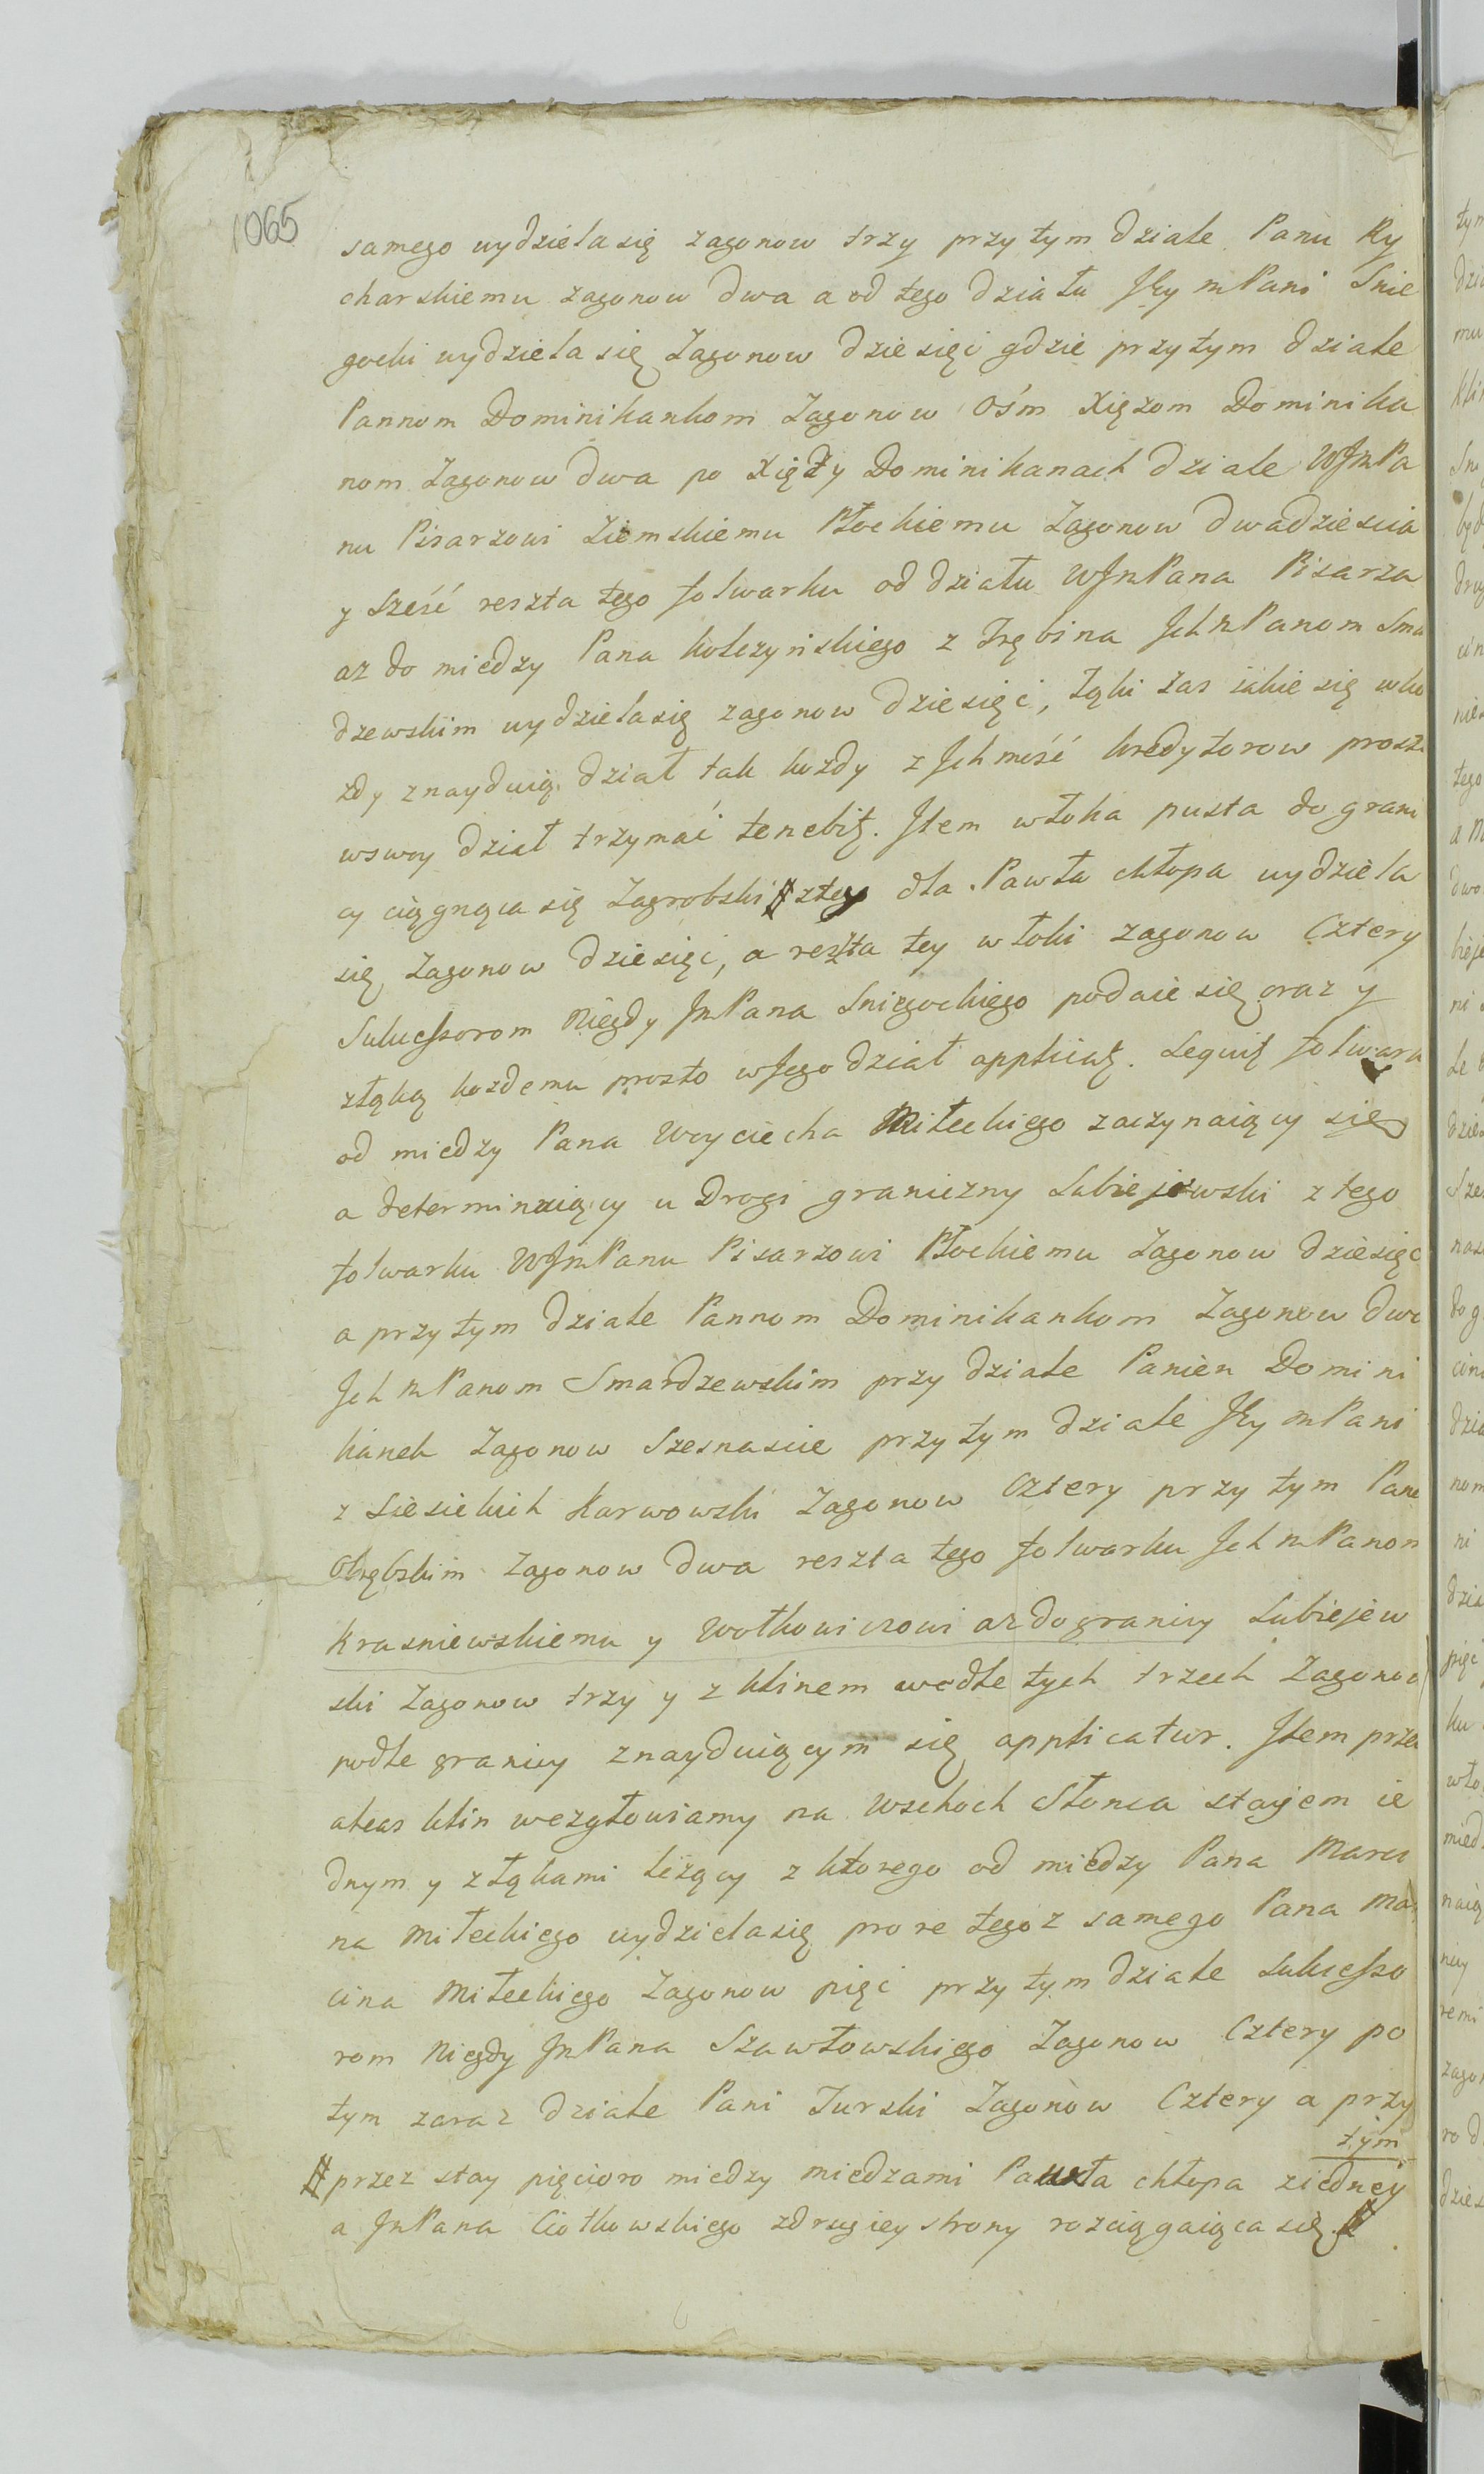 1065
samego wydziela się zagonow trzy przy tym dziale Panu Ry
charskiemu zagonow dwa a od tego działu JEy mPani Snie
gocki wydziela się Zagonow dziesięć gdzie przy tym dziale
Pannom Dominikankom Zagonow Ośm Xięzom Dominika
nom Zagonow dwa po Xięży Dominikanach dziale WJmPa
nu Pisarzowi Ziemskiemu Płockiemu Zagonow dwadziescia
y sześć reszta tego folwarku od działu WJmPana Pisarza
az do miedzy Pana Kolczynskiego z Trębina JchmPanom Sma
dzewskim wydziela się zagonow dziesięć, łąki zas iakie się w ka
zdy znayduią dział tak kozdy z Jchmość kredytorow prosto
w swoy dział trzymać tenebit. Item włoka pusta do grani
cy ciągnąca się Zagrobski # z tey dla Pawła chłopa wydziela
się Zagonow dziesięć, a reszta tey włoki zagonow Cztery
Sukcessorom Niegdy JmPana Sniegockiego podaie się oraz y
z łąką kozdemu prosto w Jego dział applicat. Sequit folwark
od miedzy Pana Woyciecha Miłeckiego zaczynaiący się
a determinaiący u Drogi graniczny Lubiejewski z tego
folwarku WJmPanu Pisarzowi Płockiemu Zagonow dziesięć
a przy tym dziale Pannom Dominikankom Zagonow dwa
JchmPanom Smardzewskim przy dziale Panien Domini
kanek Zagonow Szesnascie przy tym dziale JEy mPani
z Siesickich Karwowski Zagonow Cztery przy tym Pane
Obrębskim Zagonow dwa reszta tego folwarku JchmPanom
Krasniewskiemu y Wołkowiczowi az do granicy Lubiejew
ski Zagonow trzy y z klinem wedle tych trzech Zagonow
podle granicy znayduiącym się applicatur. Item przez
ateas klin wezgłowiamy na Wschoch Słonca stajem ie
dnym y z łąkami leżący z ktorego od miedzy Pana Marci
na Miłeckiego wydziela się pro re tegoz samego Pana Mar
cina Miłeckiego Zagonow pięć przy tym dziale Sukcesso
rom Niegdy JmPana Szawłowskiego Zagonow Cztery po
tym zaraz dziale Pani Turski Zagonow Cztery a przy
tym
# przez stay pięcioro miedzy miedzami Pawła chłopa z iedney
a JmPana Ciołkowskiego z drugiey strony rozciągaiąca się #